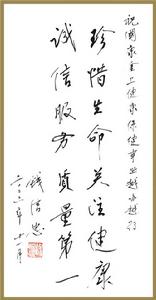 祝国家金上健康保健事业越办越好
珍惜生命关注健康
诚信服务质量第一
钱信忠
二〇〇三年十一月